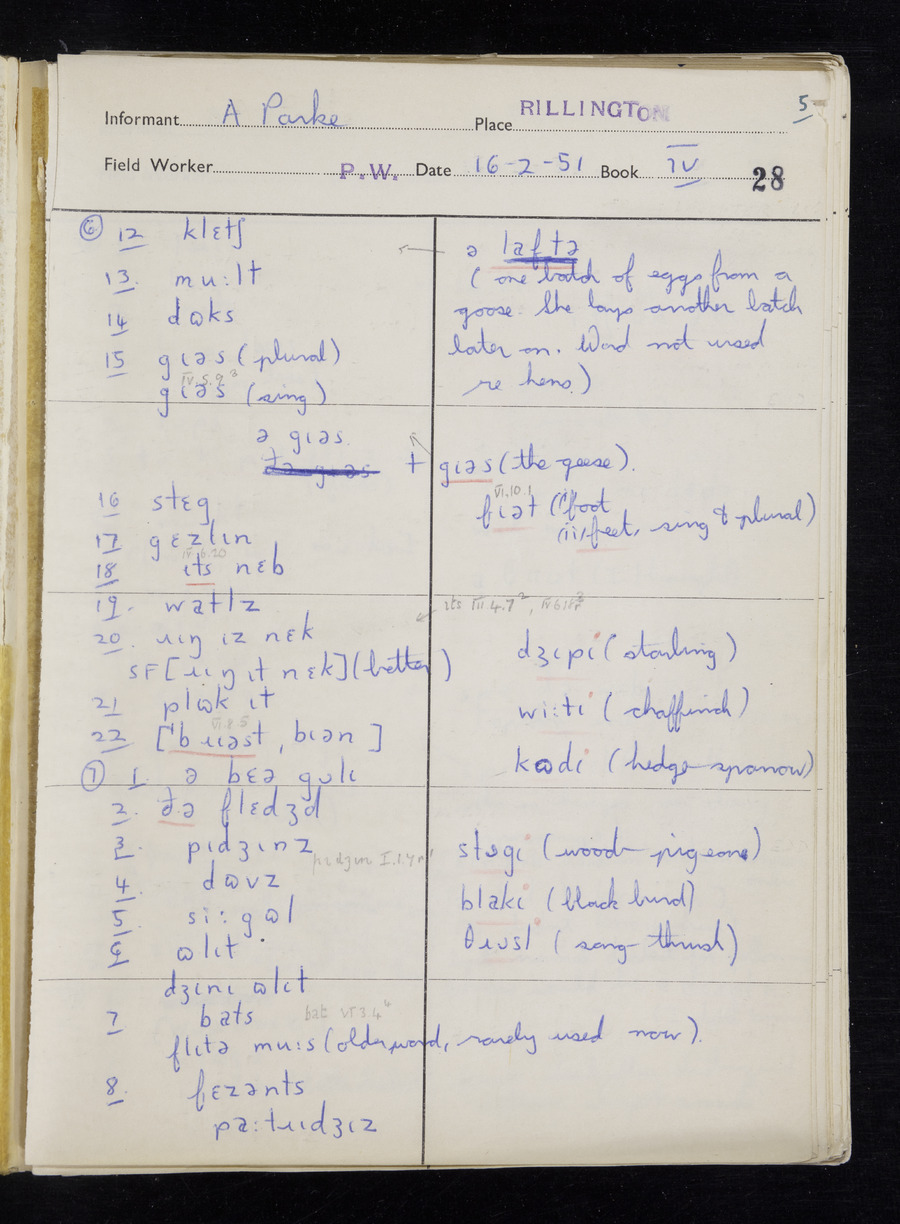 5
Informant A Parke Place RILLINGTON
Field Worker P.W. Date 16-2-51 Book IV 28
⑥ 12 klɛtʃ
13. muːlt
14 dɷks
15 gɪəs (plural)
IV.5.9³
gɪəs (sing)
ə gɪəs
16 stɛg
17 gɛzlɪn
IV 6.20
18 ɪts nɛb
19. watlz
20. ɹɪŋ ɪz nɛk
SF [ɹɪŋ ɪt nɛk] (better)
21 plɷk ɪt
VI.8.5
22 [ˈbɹɪəst, bɪən]
⑦ 1. ə bɛə gɷlɪ
2. ðə flɛdʒd
3. pɪdʒɪnz
4. dɷvz
5. siːgɷl
6 ɷlɪt
dʒɪnɪ ɷlɪt
7 bats bat VI 3.4⁴
flɪtə muːs (older word, rarely used now).
8. fɛzənts
paːtɹɪdʒɪz
ə laftə
(one batch of eggs from a
goose. She lays another batch
later on. Word not used
re hens.)
t gɪəs (the geese).
VI.10.1
fɪət (i) foot
(ii) feet, sing & plural)
ɪts VII.4.7²,
dʒɪpi (starling)
wiːti (chaffinch)
kɷdi (hedge-sparrow)
stɒgi (wood-pigeons)
blaki (black bird)
θɹʊsl (song-thrush)